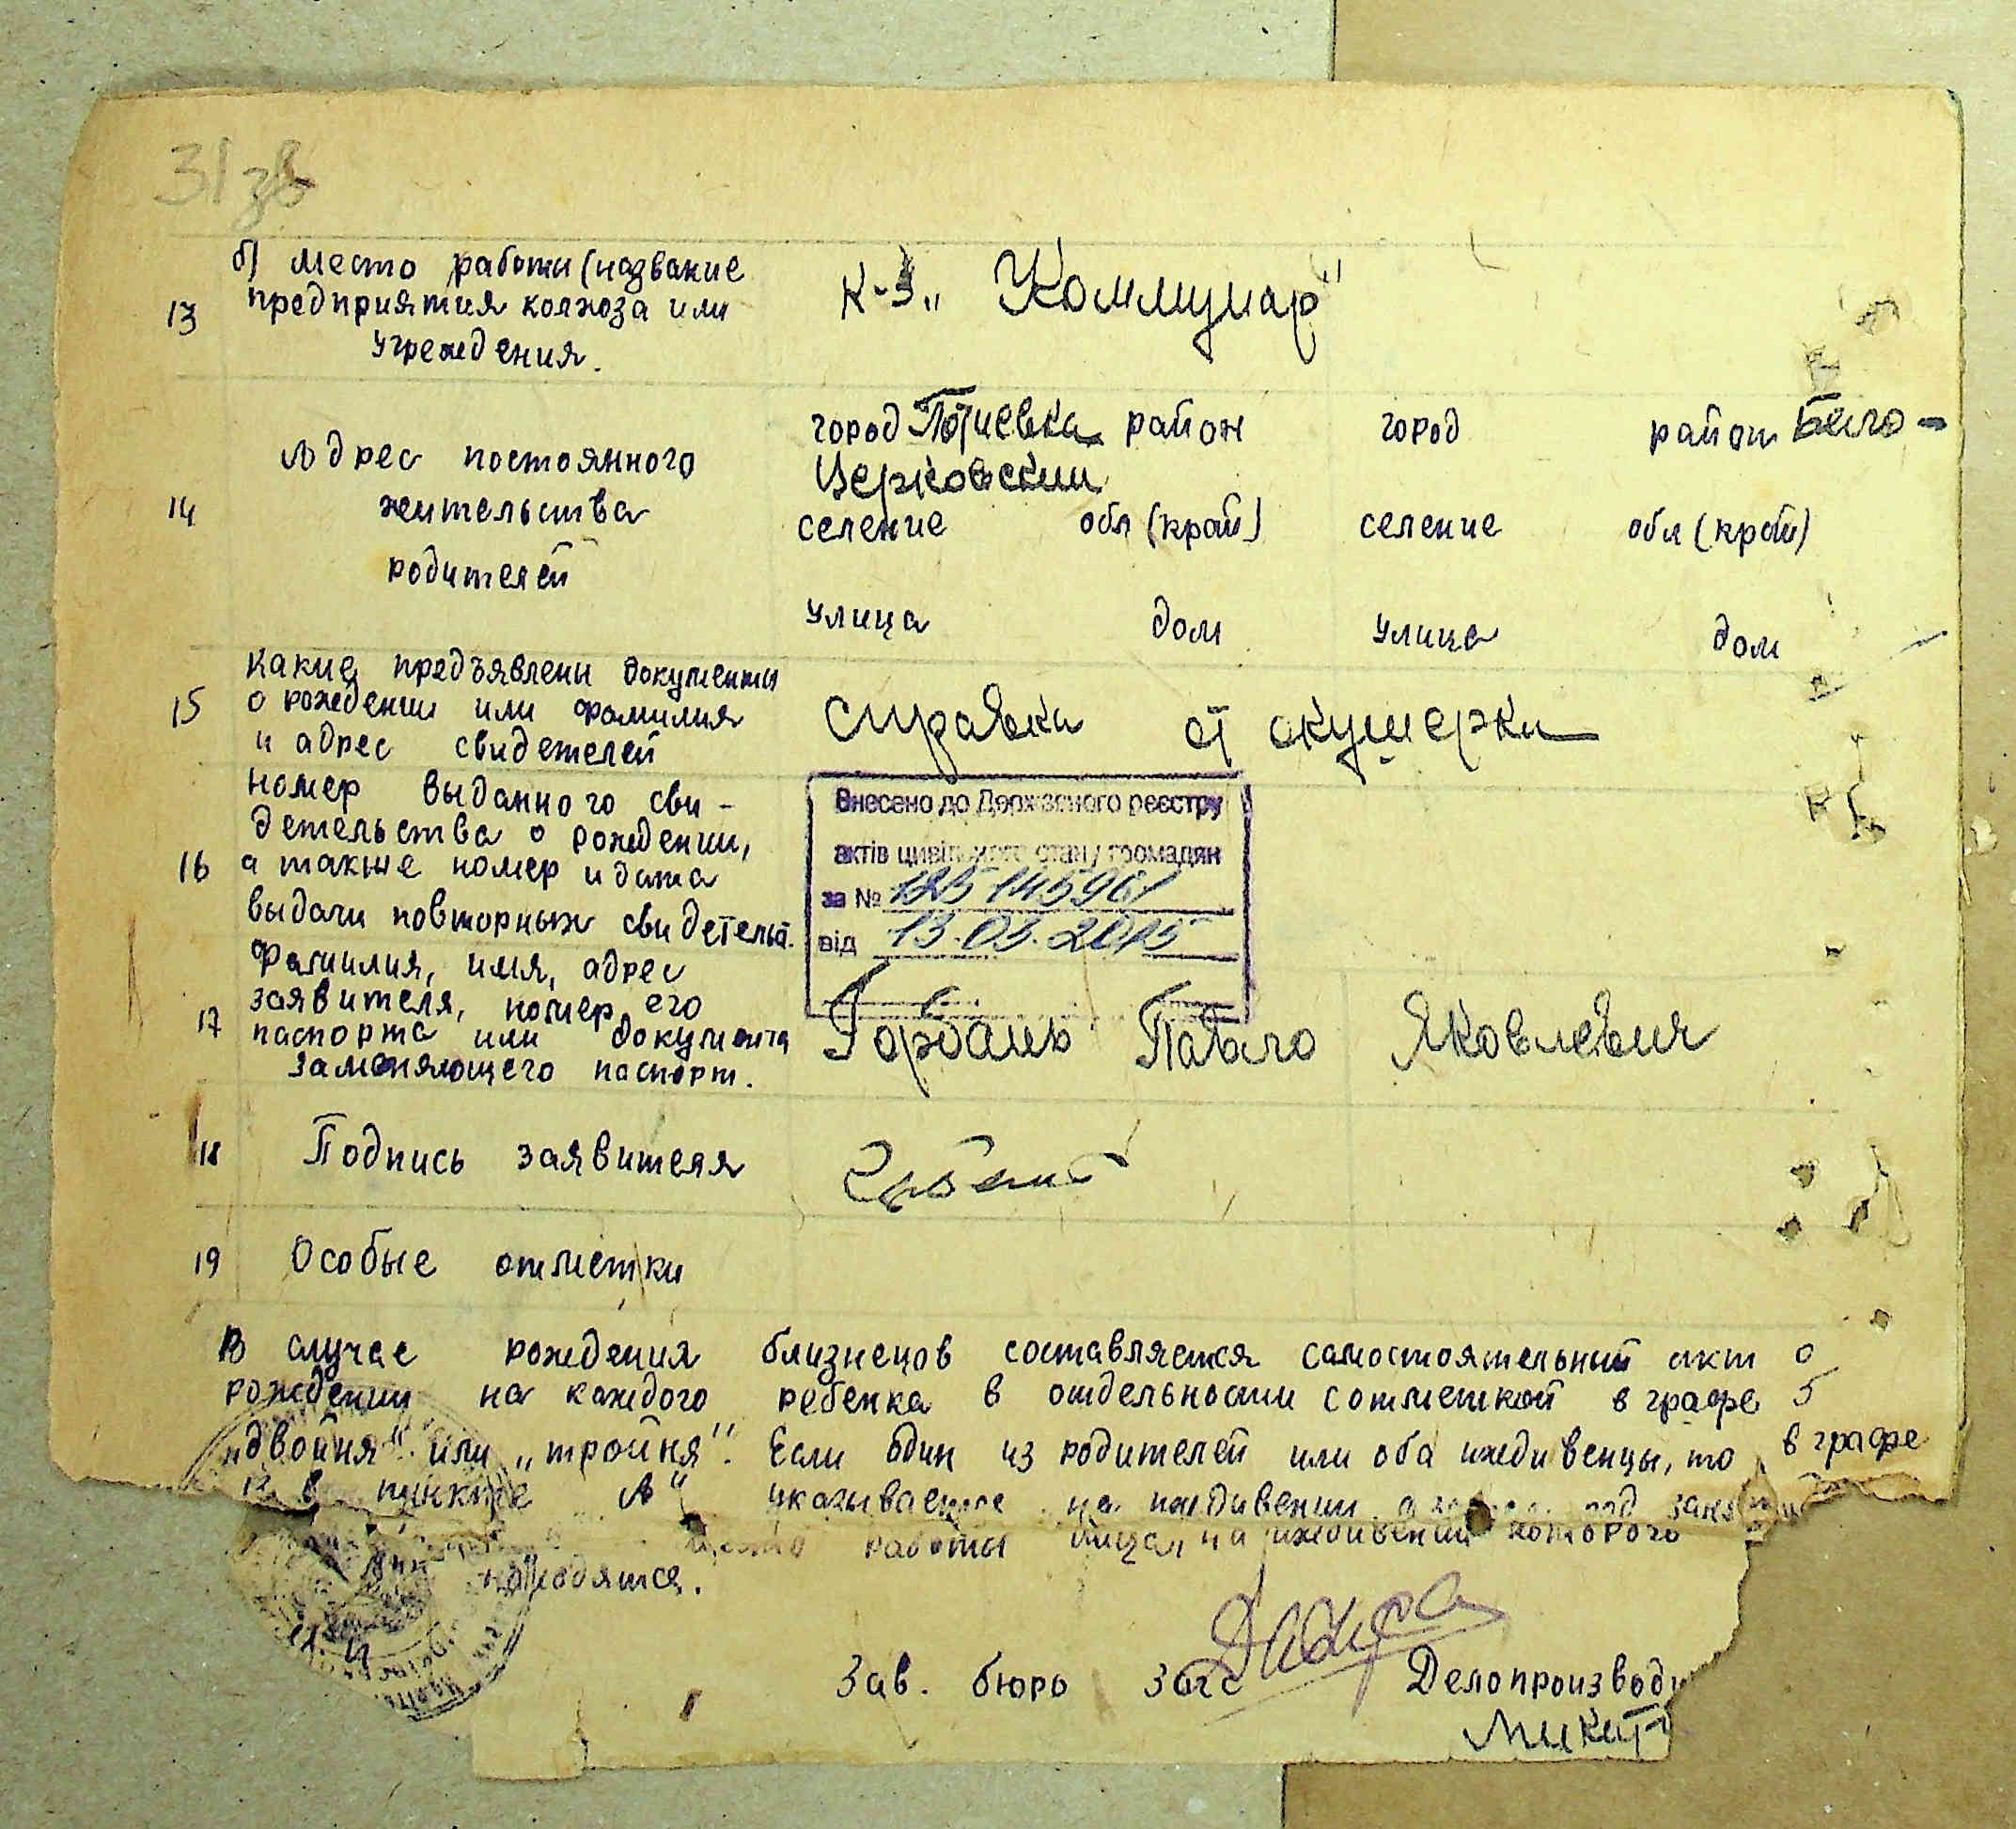 31 зв
б) место работы (название
13 предприятия колхоза или
учреждения.
К-з „Коммунар"
город Потиевка район город район Бело-
Церковский
14 Адрес постоянного
жительства
родителей
селение обл (край) селение обл (край)
улица дом улица дом
Какие предъявлены документы
15 о рождении или фамилия
и адрес свидетелей
справка от акушерки
номер выданного сви-
детельства о рождении,
16 а также номер и дата
выдачи повторных свидетельст.
Внесено до Державного реєстру
актів цивільного стану громадян
за № 125145961
від 13.03.2015
Фамилия, имя, адрес
заявителя, номер его
17 паспорта или документа
заменяющего паспорт.
Горбань Павло Яковлевич
18 Подпись заявителя
19 Особые отметки
В случае рождения близнецов составляется самостоятельный акт о
рождении на каждого ребенка в отдельности с отметкой в графе 5
„двойня" или „тройня". Если один из родителей или оба иждивенцы, то в графе
12 в пункте А" указывается на иждивении
место работы лица, на иждивении которого
находятся.
Зав. бюро загс Делопроизвод
Микит